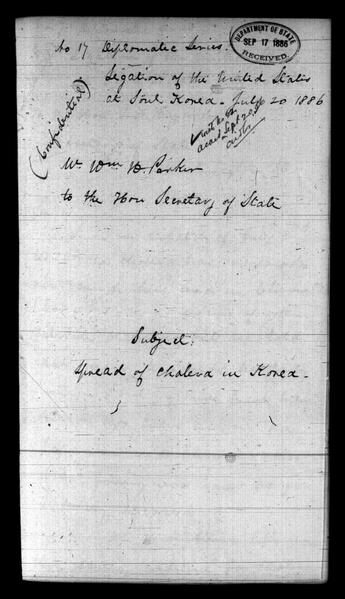 No 17 Diplomatic Series.
DEPARTMENT OF STATE
SEP 17 1886
RECEIVED
Legation of the United States
at Soul Korea - July 20 1886
(Confidential)
Mr Wm H. Parker
to the Hon Secretary of State
Subject:
Spread of Cholera in Korea -